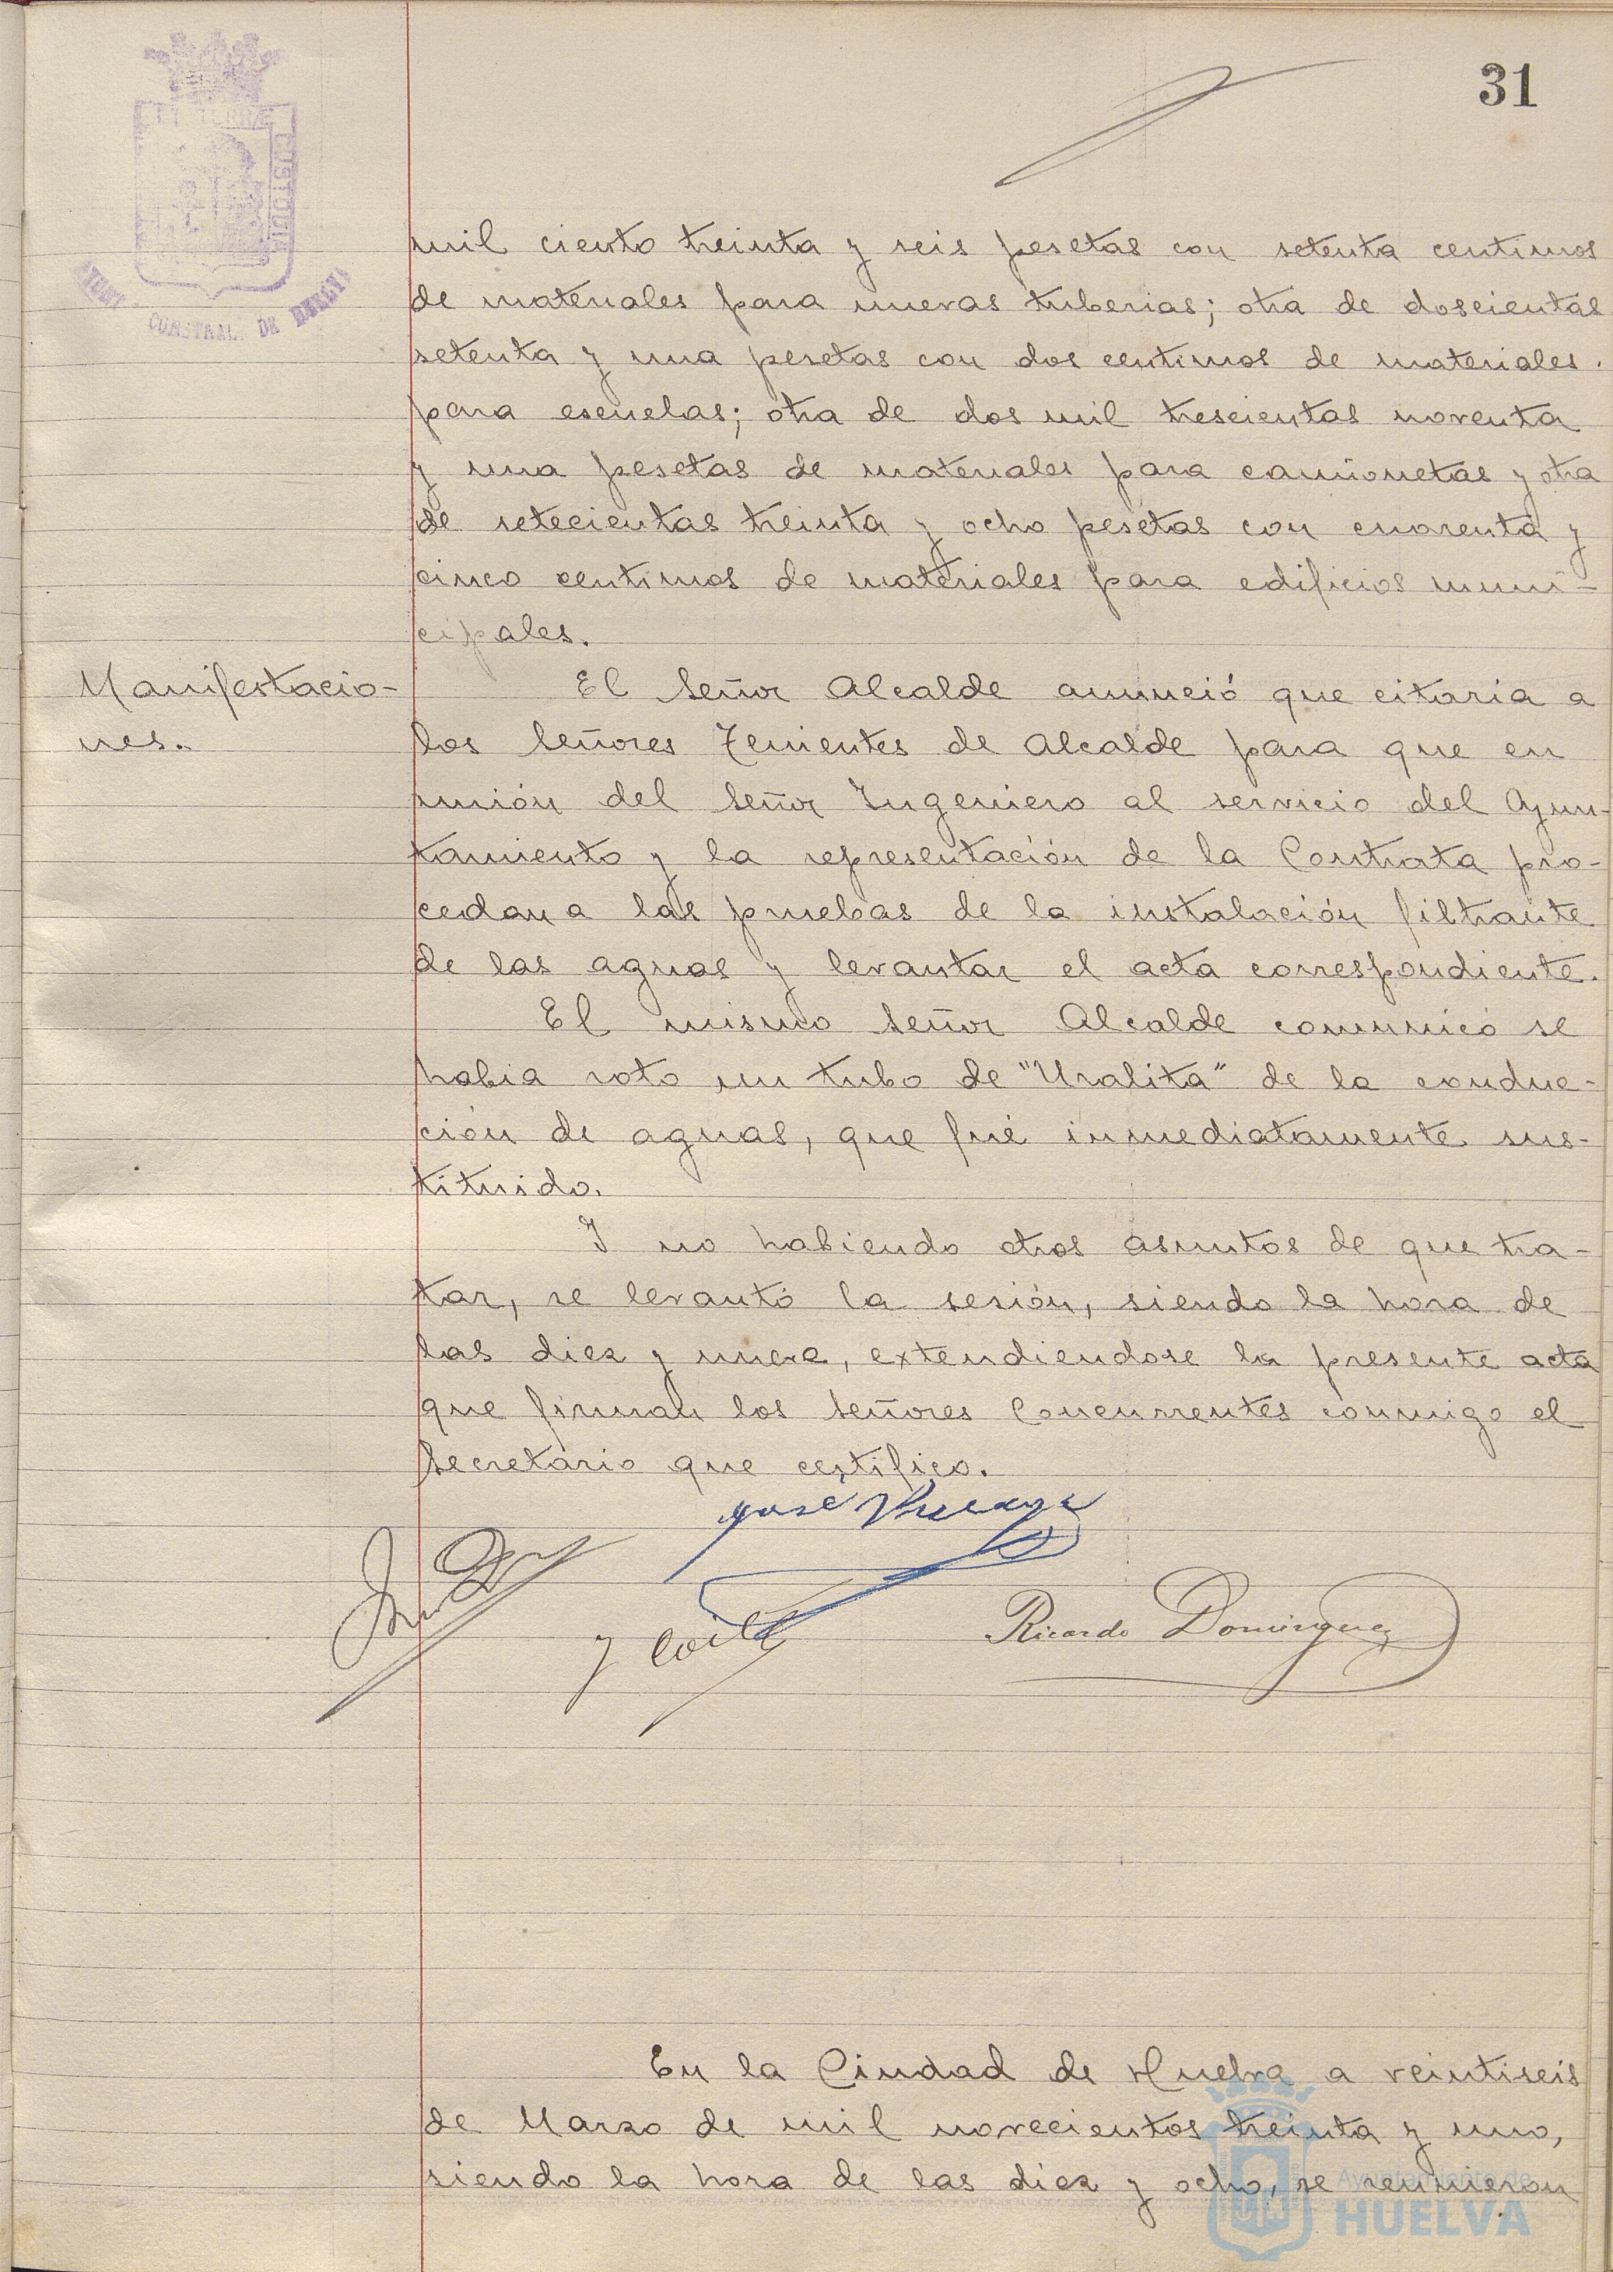 31
mil ciento treinta y seis pesetas con setenta centimos
de materiales para nuevas tuberias; otra de doscientas
setenta y una pesetas con dos centimos de materiales.
para escuelas; otra de dos mil trescientas noventa
y una pesetas de materiales para camionetas y otra
de setecientas treinta y ocho pesetas con cuarenta y
cinco centimos de materiales para edificios muni-
cipales.
Manifestacio-
nes.
El Señor Alcalde anunció que citaria a
los Señores Tenientes de Alcalde para que en
unión del Señor Ingeniero al servicio del Ayun-
tamiento y la representación de la Contrata pro-
cedan a las pruebas de la instalación filtrante
de las aguas y levantar el acta correspondiente.
El mismo Señor Alcalde comunicó se
habia roto un tubo de "Uralita" de la conduc-
ción de aguas, que fué inmediatamente sus-
tituido.
Y no habiendo otros asuntos de que tra-
tar, se levantó la sesión, siendo la hora de
las diez y nueve, extendiendose la presente acta
que firman los Señores Concurrentes conmigo el
Secretario que certifico.
José
Ricardo Dominguez
En la Ciudad de Huelva a veintiseis
de Marzo de mil novecientos treinta y uno,
siendo la hora de las diez y ocho, se reunieron
Ayuntamiento de
HUELVA